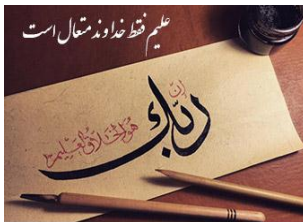 علیم فقط خداوند متعال است
إن
ربك
هو الخلاق العليم